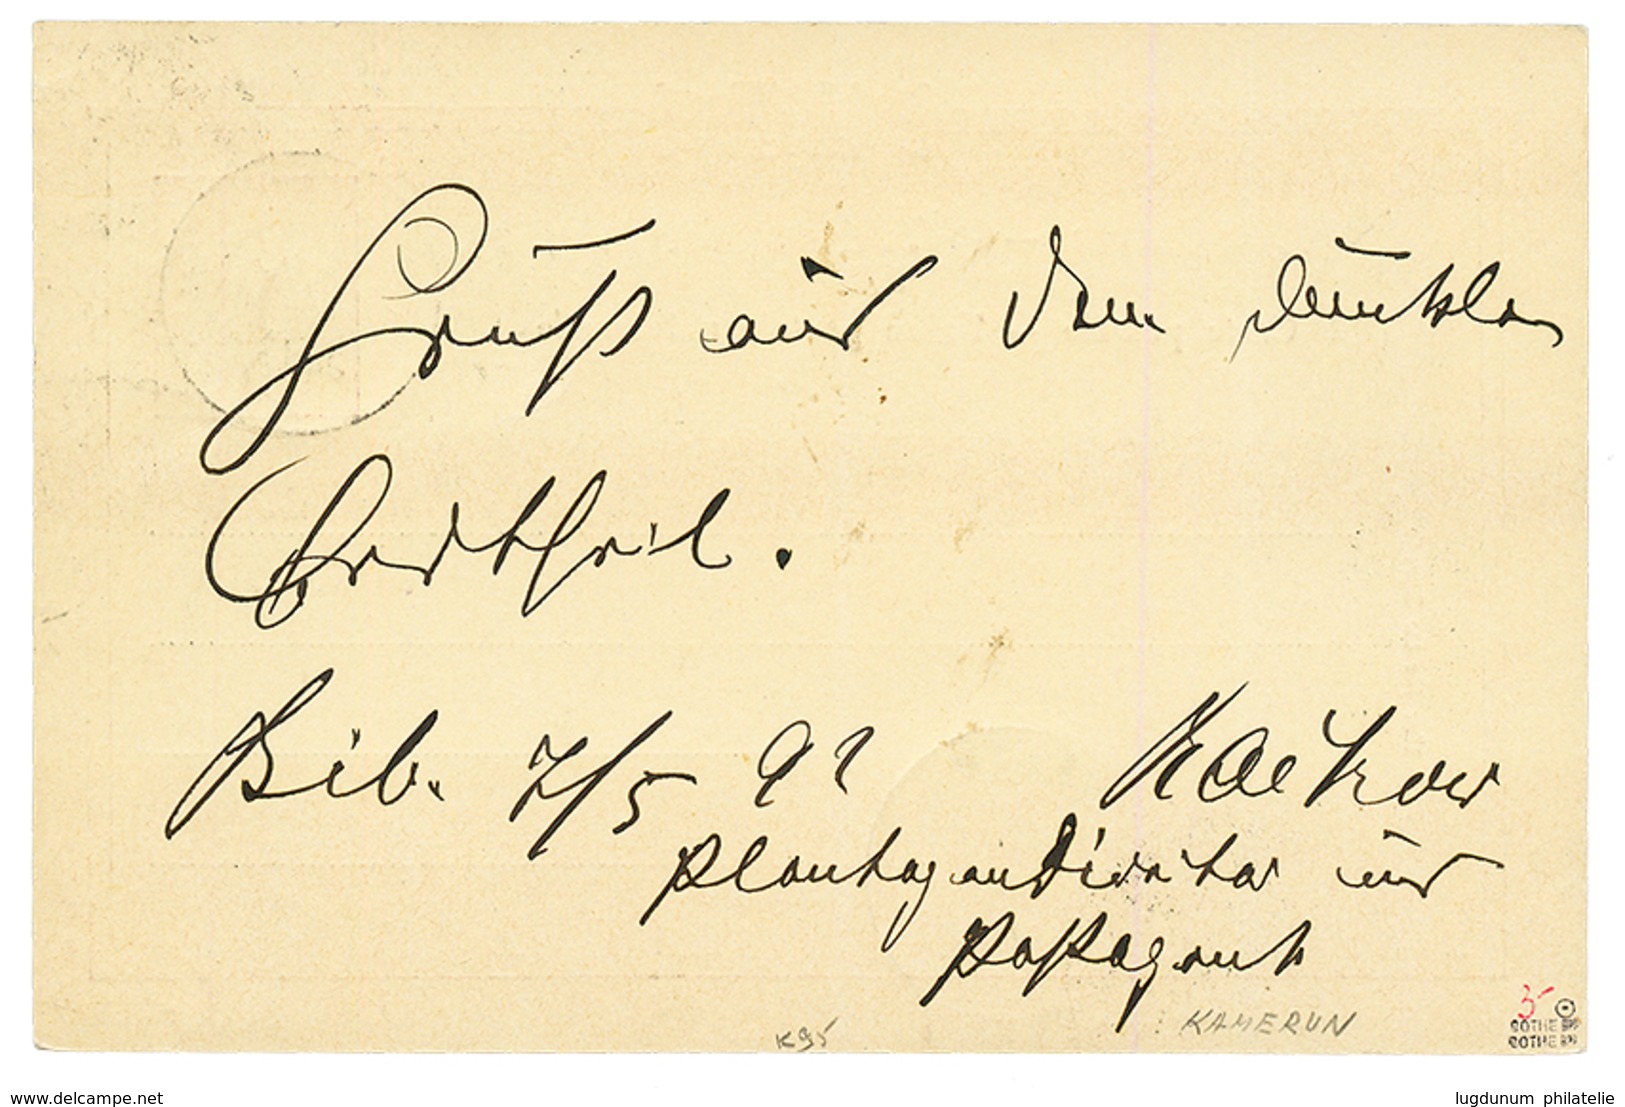 Gruß aus dem dunklen
Erdtheil.
Bib. 7/5 92
Plantagendirektor und
Postagent
K95
KAMERUN
GOTHE
GOTHE
www.delcampe.com
lugdunum philatelie